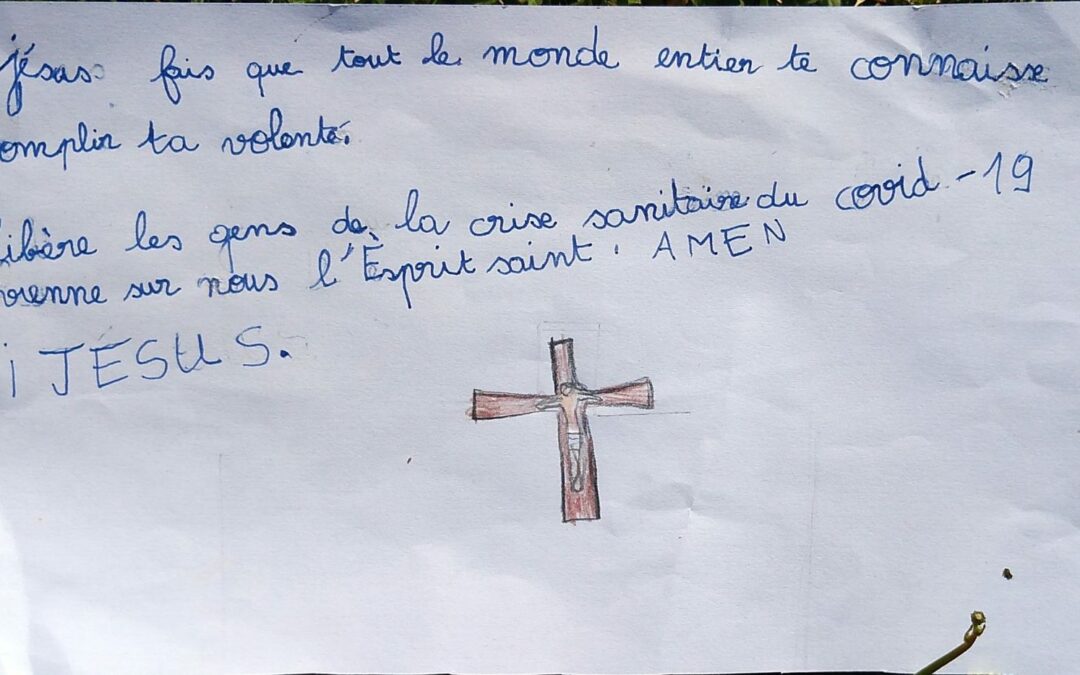 jésus fais que tout le monde entier te connaisse
omplir ta volonté.
ibère les gens de la crise sanitaire du covid-19
vienne sur nous l'Èsprit saint. AMEN
i JESUS.